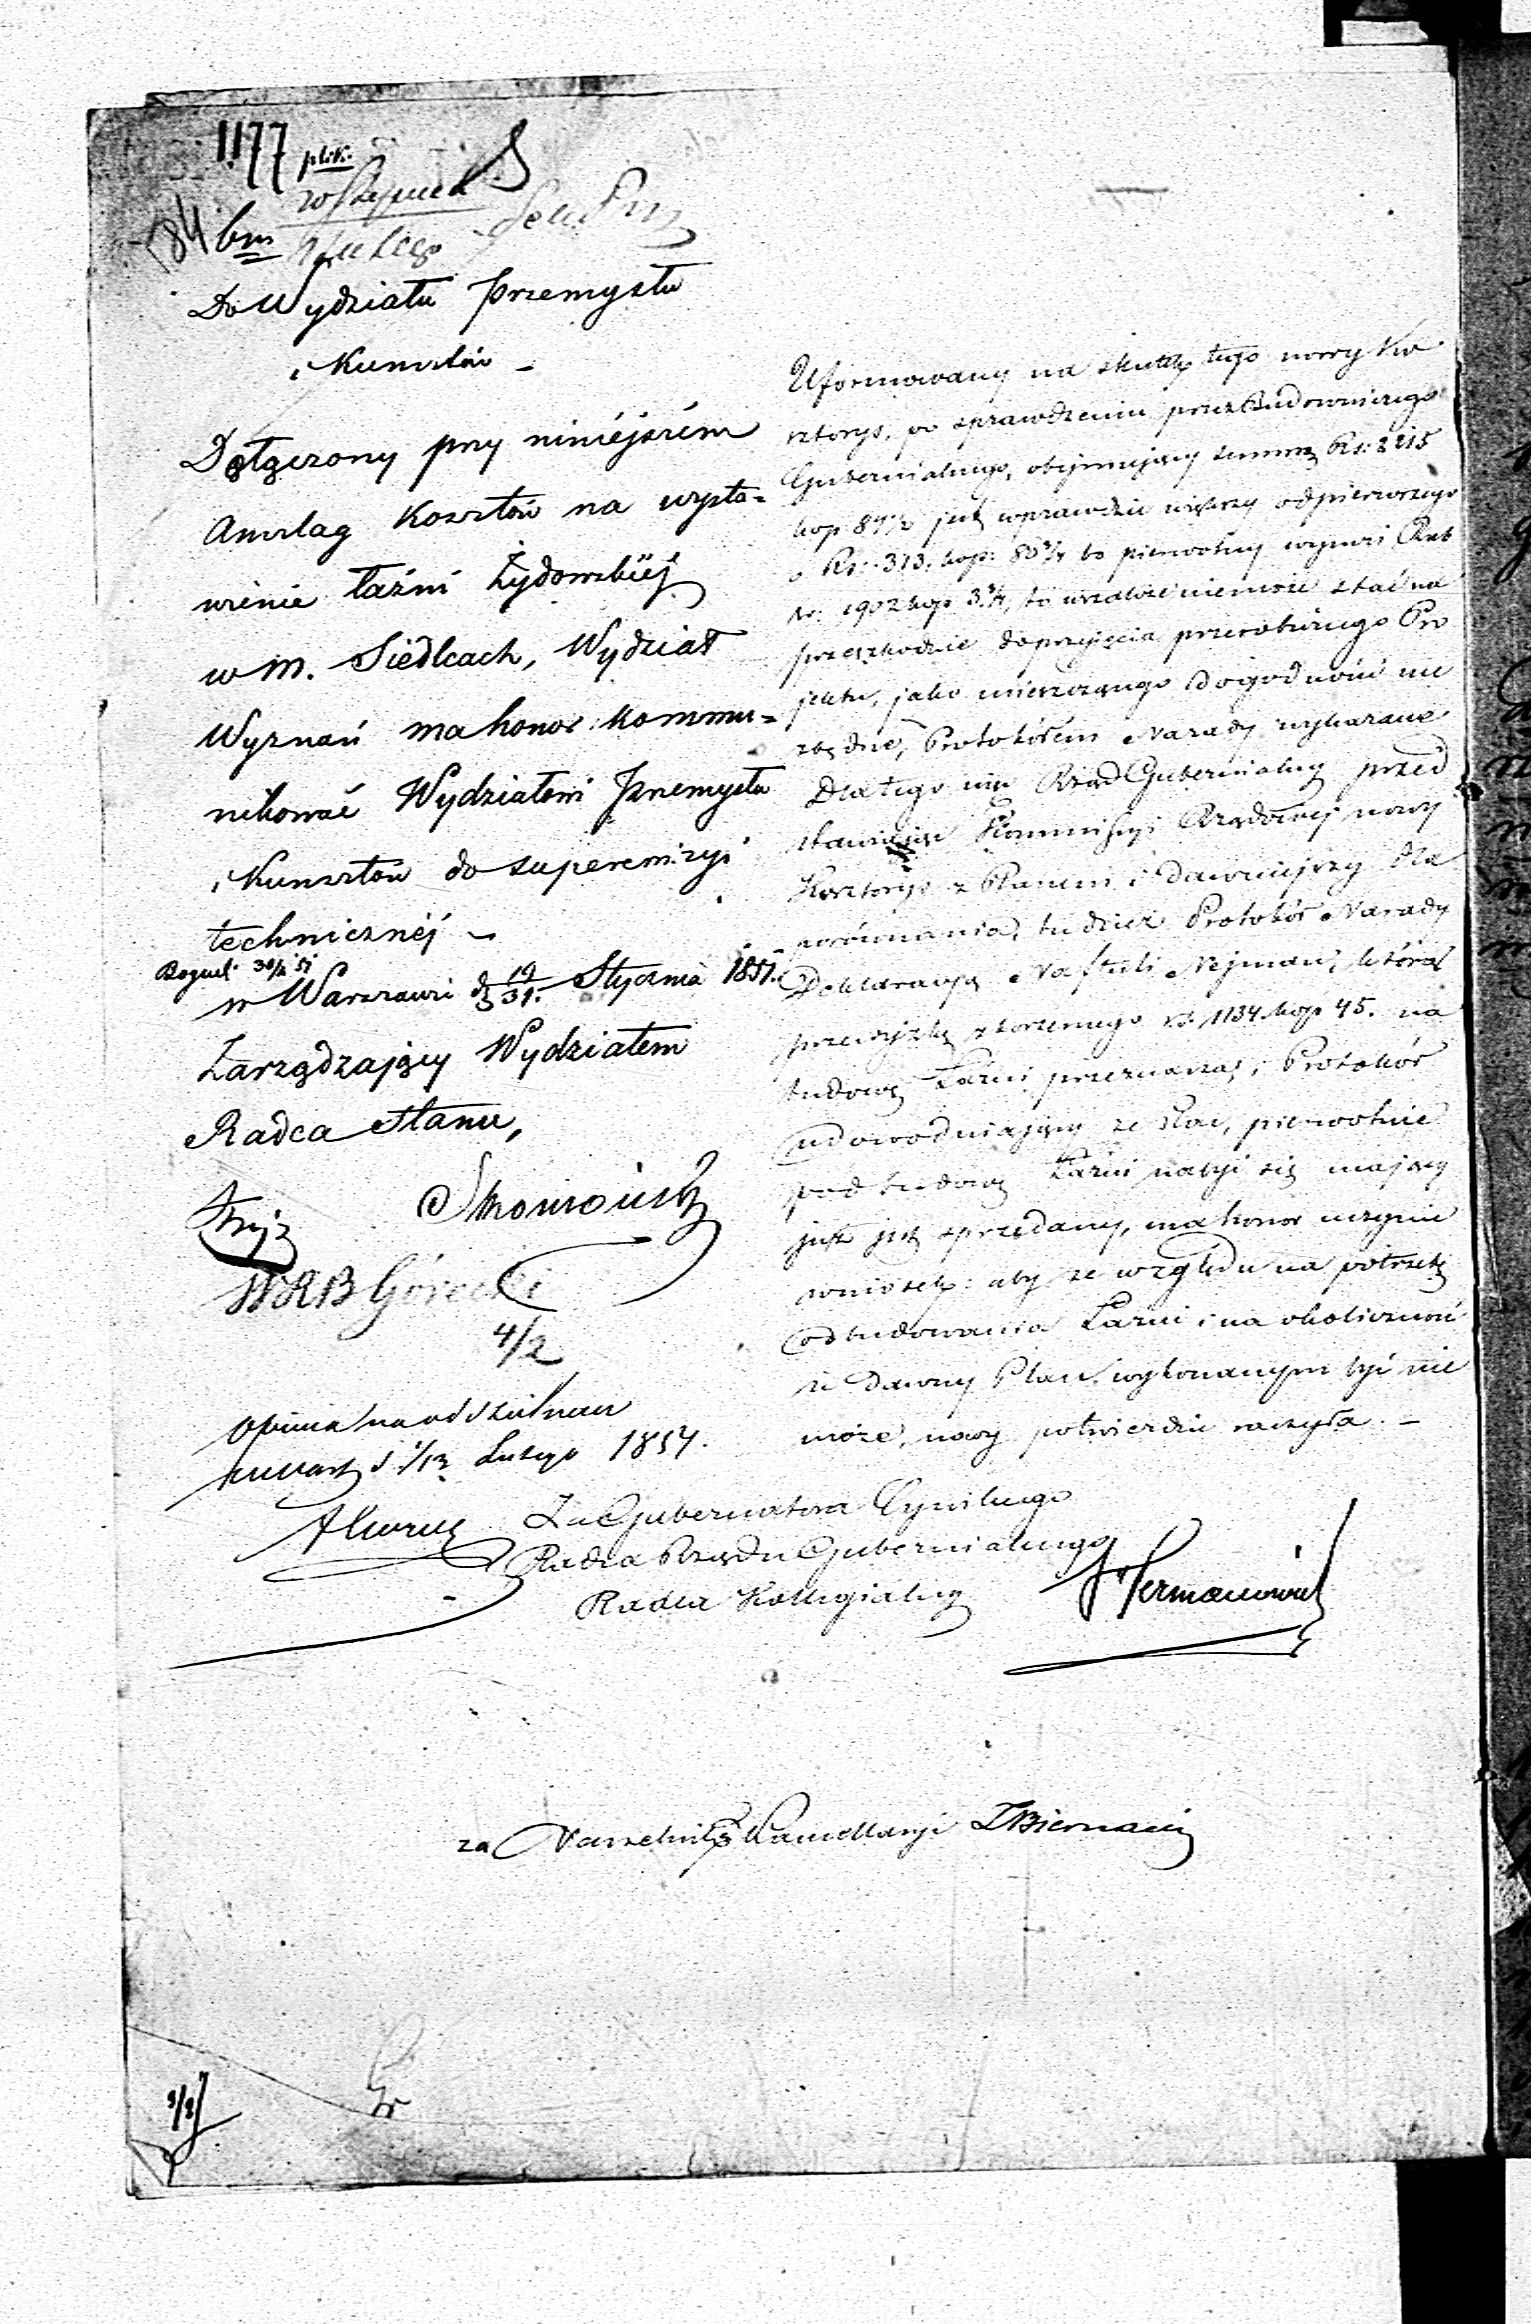 1177
184 bm
Do Wydziału Przemysłu
i Kunsztów -
Dołączony przy niniéjszém
Anszlag Kosztów na wysta=
wienie łaźni Żydowskiéj
w m. Siedlcach, Wydział
Wyznań ma honor kommu=
nikować Wydziałowi Przemysłu
i Kunsztów do superrewizyi
technicznéj -
w Warszawie d 19/31 Stycznia 1851.
Zarządzający Wydziałem
Radca Stanu,
Górecki
4/2
Lutego 1851.
Uformowany na skutek tego nowy Ko
sztorys, po sprawdzeniu przez Budowniczego
Gubernialnego, obejmujący summę Rs: 2215
kop 87½ jest wprawdzie większy od pierwszego
o Rs: 313. kop: 83¾ bo pierwotny wynosi Rub
sr: 1902 kop 3¾, to wszakże niemoże stać na
przeszkodzie do przyjęcia przerobionego Pro
jektu, jako mieszczącego dogodności nie
zbędne, Protokółem Narady wykazane
Dla tego więc Rząd Gubernialny przed
stawiając Kommissyi Rządowej nowy
Kosztorys z Planem i dawniejszy dla
porównania, tudzież Protokół Narady
Deklaracyą Naftuli Nejman, która
przewyżkę złożonego rs 1134 kop 45. na
budowę Łaźni przeznacza, i Protokół
udowodniający że plac, pierwotnie
pod budowę Łaźni nabyć się mający
już jest sprzedany, ma honor uczynić
wniosek: aby ze względu na potrzebę
odbudowania Łaźni i na okoliczność
że dawny Plan wykonanym być nie
może, nowy potwierdzić raczyła. -
Za Gubernatora Cywilnego
Radca Rządu Gubernialnego
Radca Kollegialny Hermanowicz
za Naczelnika Kancellaryi Biernacki